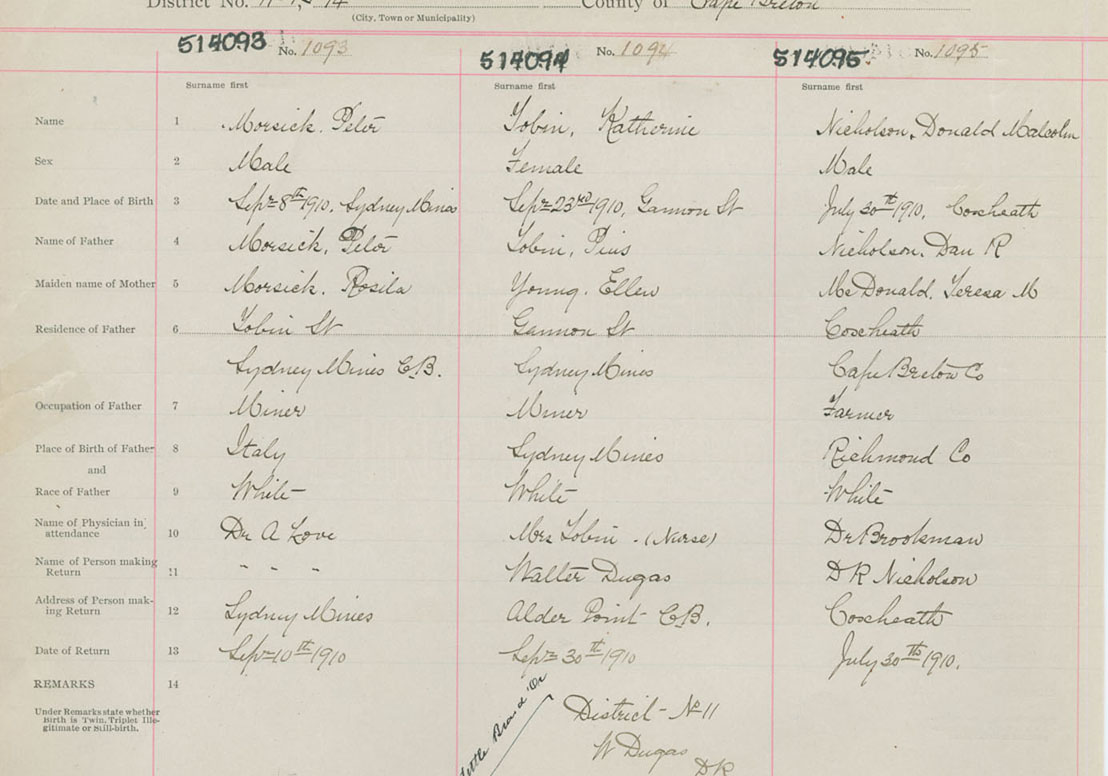 District No. County of Cape Breton
(City, Town or Municipality)
514093 No. 1093 514094 No. 1094 514095 No. 1095
Surname first Surname first Surname first
Name 1 Morsick. Peter Tobin, Katherine Nicholson, Donald Malcolm
Sex 2 Male Female Male
Date and Place of Birth 3 Sept 8th 1910, Sydney Mines Sept 23rd 1910, Gannon St July 20th 1910, Coxheath
Name of Father 4 Morsick, Peter Tobin, Pius Nicholson, Dan R
Maiden name of Mother 5 Morsick. Rosila Young. Ellen McDonald, Teresa M
Residence of Father 6 Tobin St Gannon St Coxheath
Sydney Mines C.B. Sydney Mines Cape Breton Co
Occupation of Father 7 Miner Miner Farmer
Place of Birth of Father 8 Italy Sydney Mines Richmond Co
and
Race of Father 9 White White White
Name of Physician in
attendance 10 Dr A Love Mrs Tobin - (Nurse) Dr Brookman
Name of Person making
Return 11 " " " Walter Dugas D R Nicholson
Address of Person mak-
ing Return 12 Sydney Mines Alder Point C.B. Coxheath
Date of Return 13 Sept 10th 1910 Sept 30th 1910 July 30th 1910.
REMARKS 14
Under Remarks state whether
Birth is Twin, Triplet Ille-
gitimate or Still-birth.
Little Bras d'Or
District No 11
W Dugas
DR